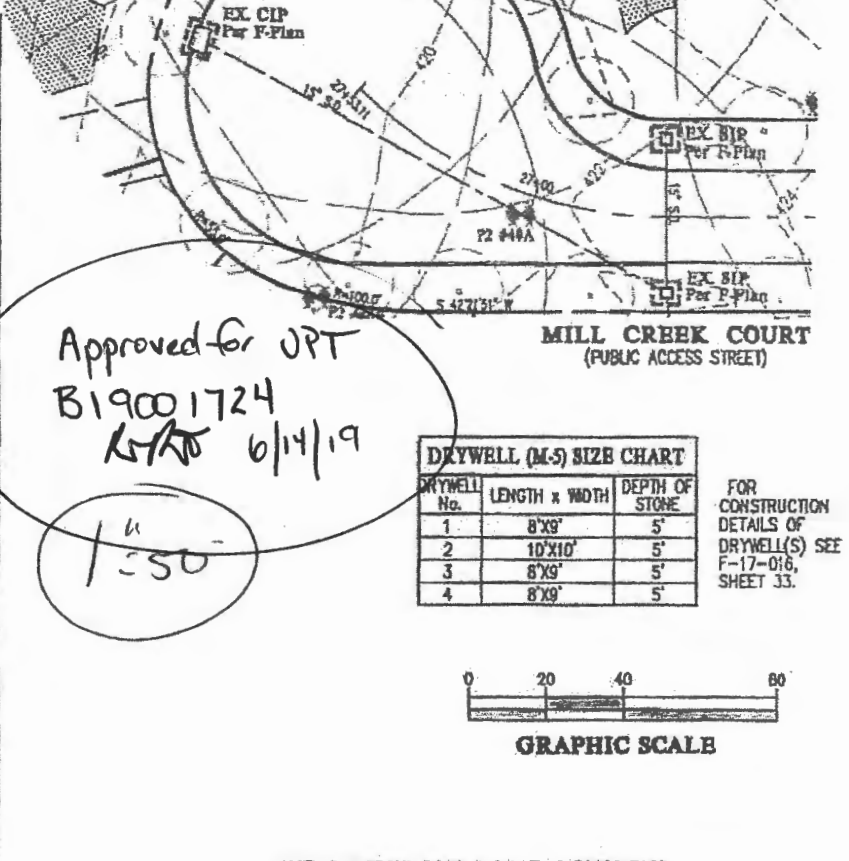 EX. CIP
Per F-Plan
420
15" S.D.
EX. SIP
Per F-Plan
422
424
15" S.D.
P2 #48A
EX. SIP
Per F-Plan
MILL CREEK COURT
(PUBLIC ACCESS STREET)
Approved for UPT
B19001724
6/14/19
1"=50'
DRYWELL (M-5) SIZE CHART
DRYWELL No. LENGTH x WIDTH DEPTH OF STONE
1 8'X9' 5'
2 10'X10' 5'
3 8'X9' 5'
4 8'X9' 5'
FOR
CONSTRUCTION
DETAILS OF
DRYWELL(S) SEE
F-17-016,
SHEET 33.
0 20 40 60
GRAPHIC SCALE